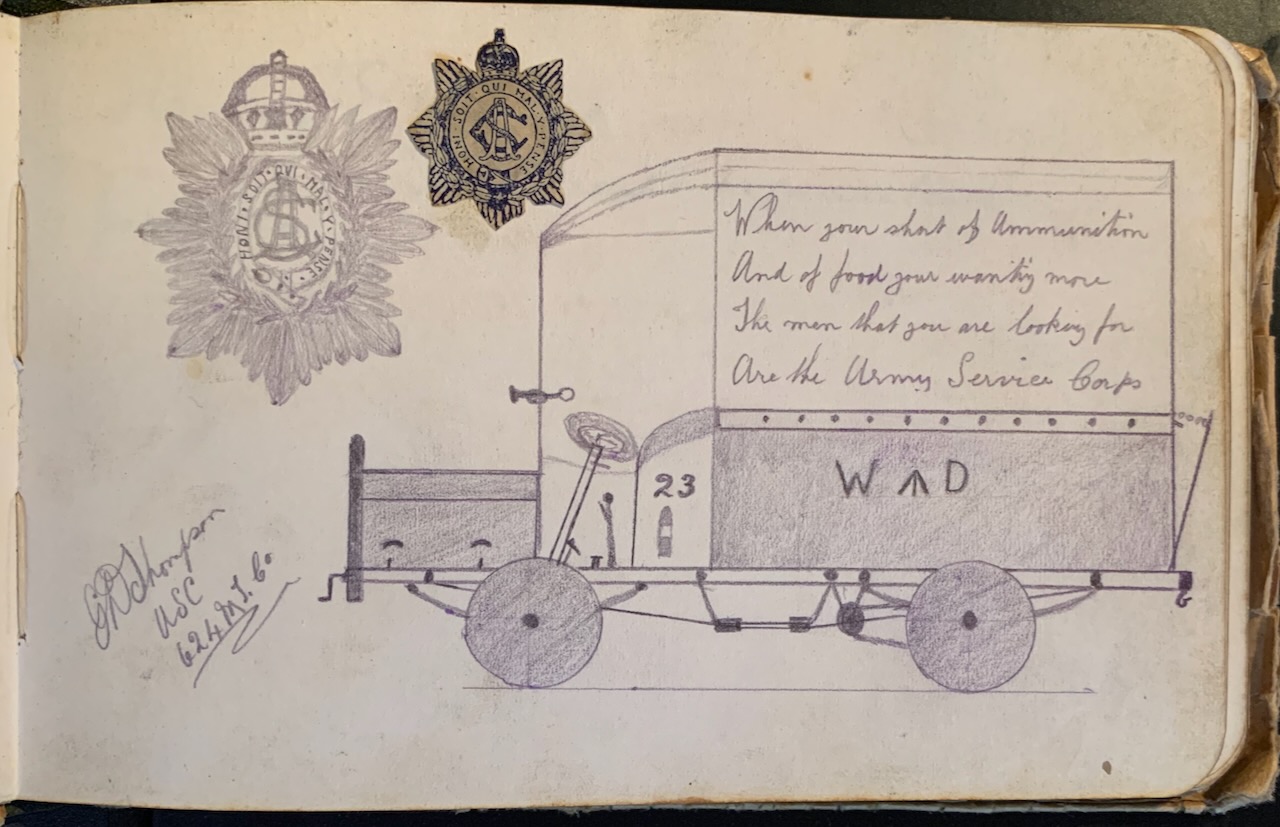 HONI · SOIT · QUI · MAL · Y · PENSE ·
ASC
HONI · SOIT · QUI · MAL · Y · PENSE
ASC
When your short of Ammunition
And of food your wanting more
The men that you are looking for
Are the Army Service Corps
23
W D
Thompson
ASC
624 M.T. Co